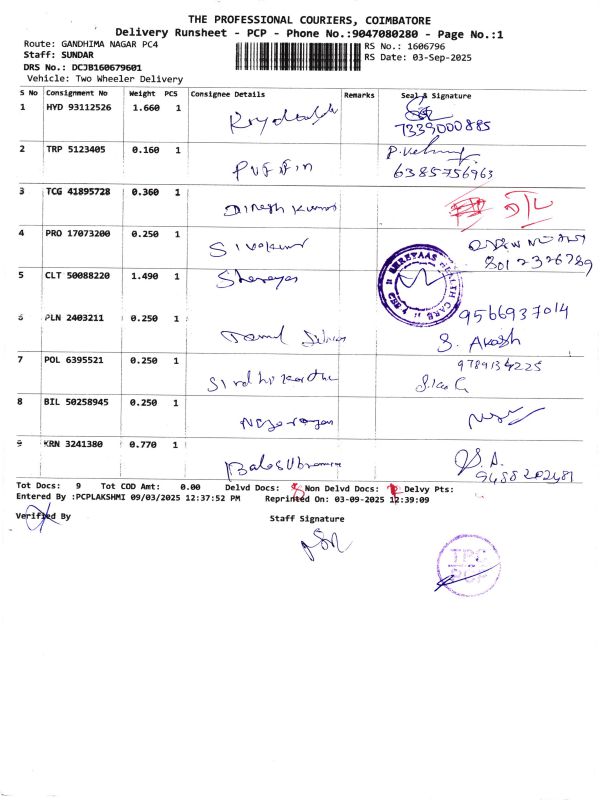 THE PROFESSIONAL COURIERS, COIMBATORE
Delivery Runsheet - PCP - Phone No.:9047080280 - Page No.:1
Route: GANDHIMA NAGAR PC4
RS No.: 1606796
Staff: SUNDAR
RS Date: 03-Sep-2025
DRS No.: DCJB160679601
Vehicle: Two Wheeler Delivery
S No Consignment No Weight PCS Consignee Details Remarks Seal & Signature
1 HYD 93112526 1.660 1
7339000885
2 TRP 5123405 0.160 1
6385756963
3 TCG 41895728 0.360 1
Dinesh Kumar D/L
4 PRO 17073200 0.250 1
Sivakumar 8012326789
5 CLT 50088220 1.490 1
Shereyas SHREYAAS HEALTH CARE
6 PLN 2403211 0.250 1 9566937014
S. Akash
7 POL 6395521 0.250 1 9789134225
8 BIL 50258945 0.250 1
9 KRN 3241380 0.770 1
9488202481
Tot Docs: 9 Tot COD Amt: 0.00 Delvd Docs: Non Delvd Docs: Delvy Pts:
Entered By :PCPLAKSHMI 09/03/2025 12:37:52 PM Reprinted On: 03-09-2025 12:39:09
Verified By Staff Signature
TPC
PCP